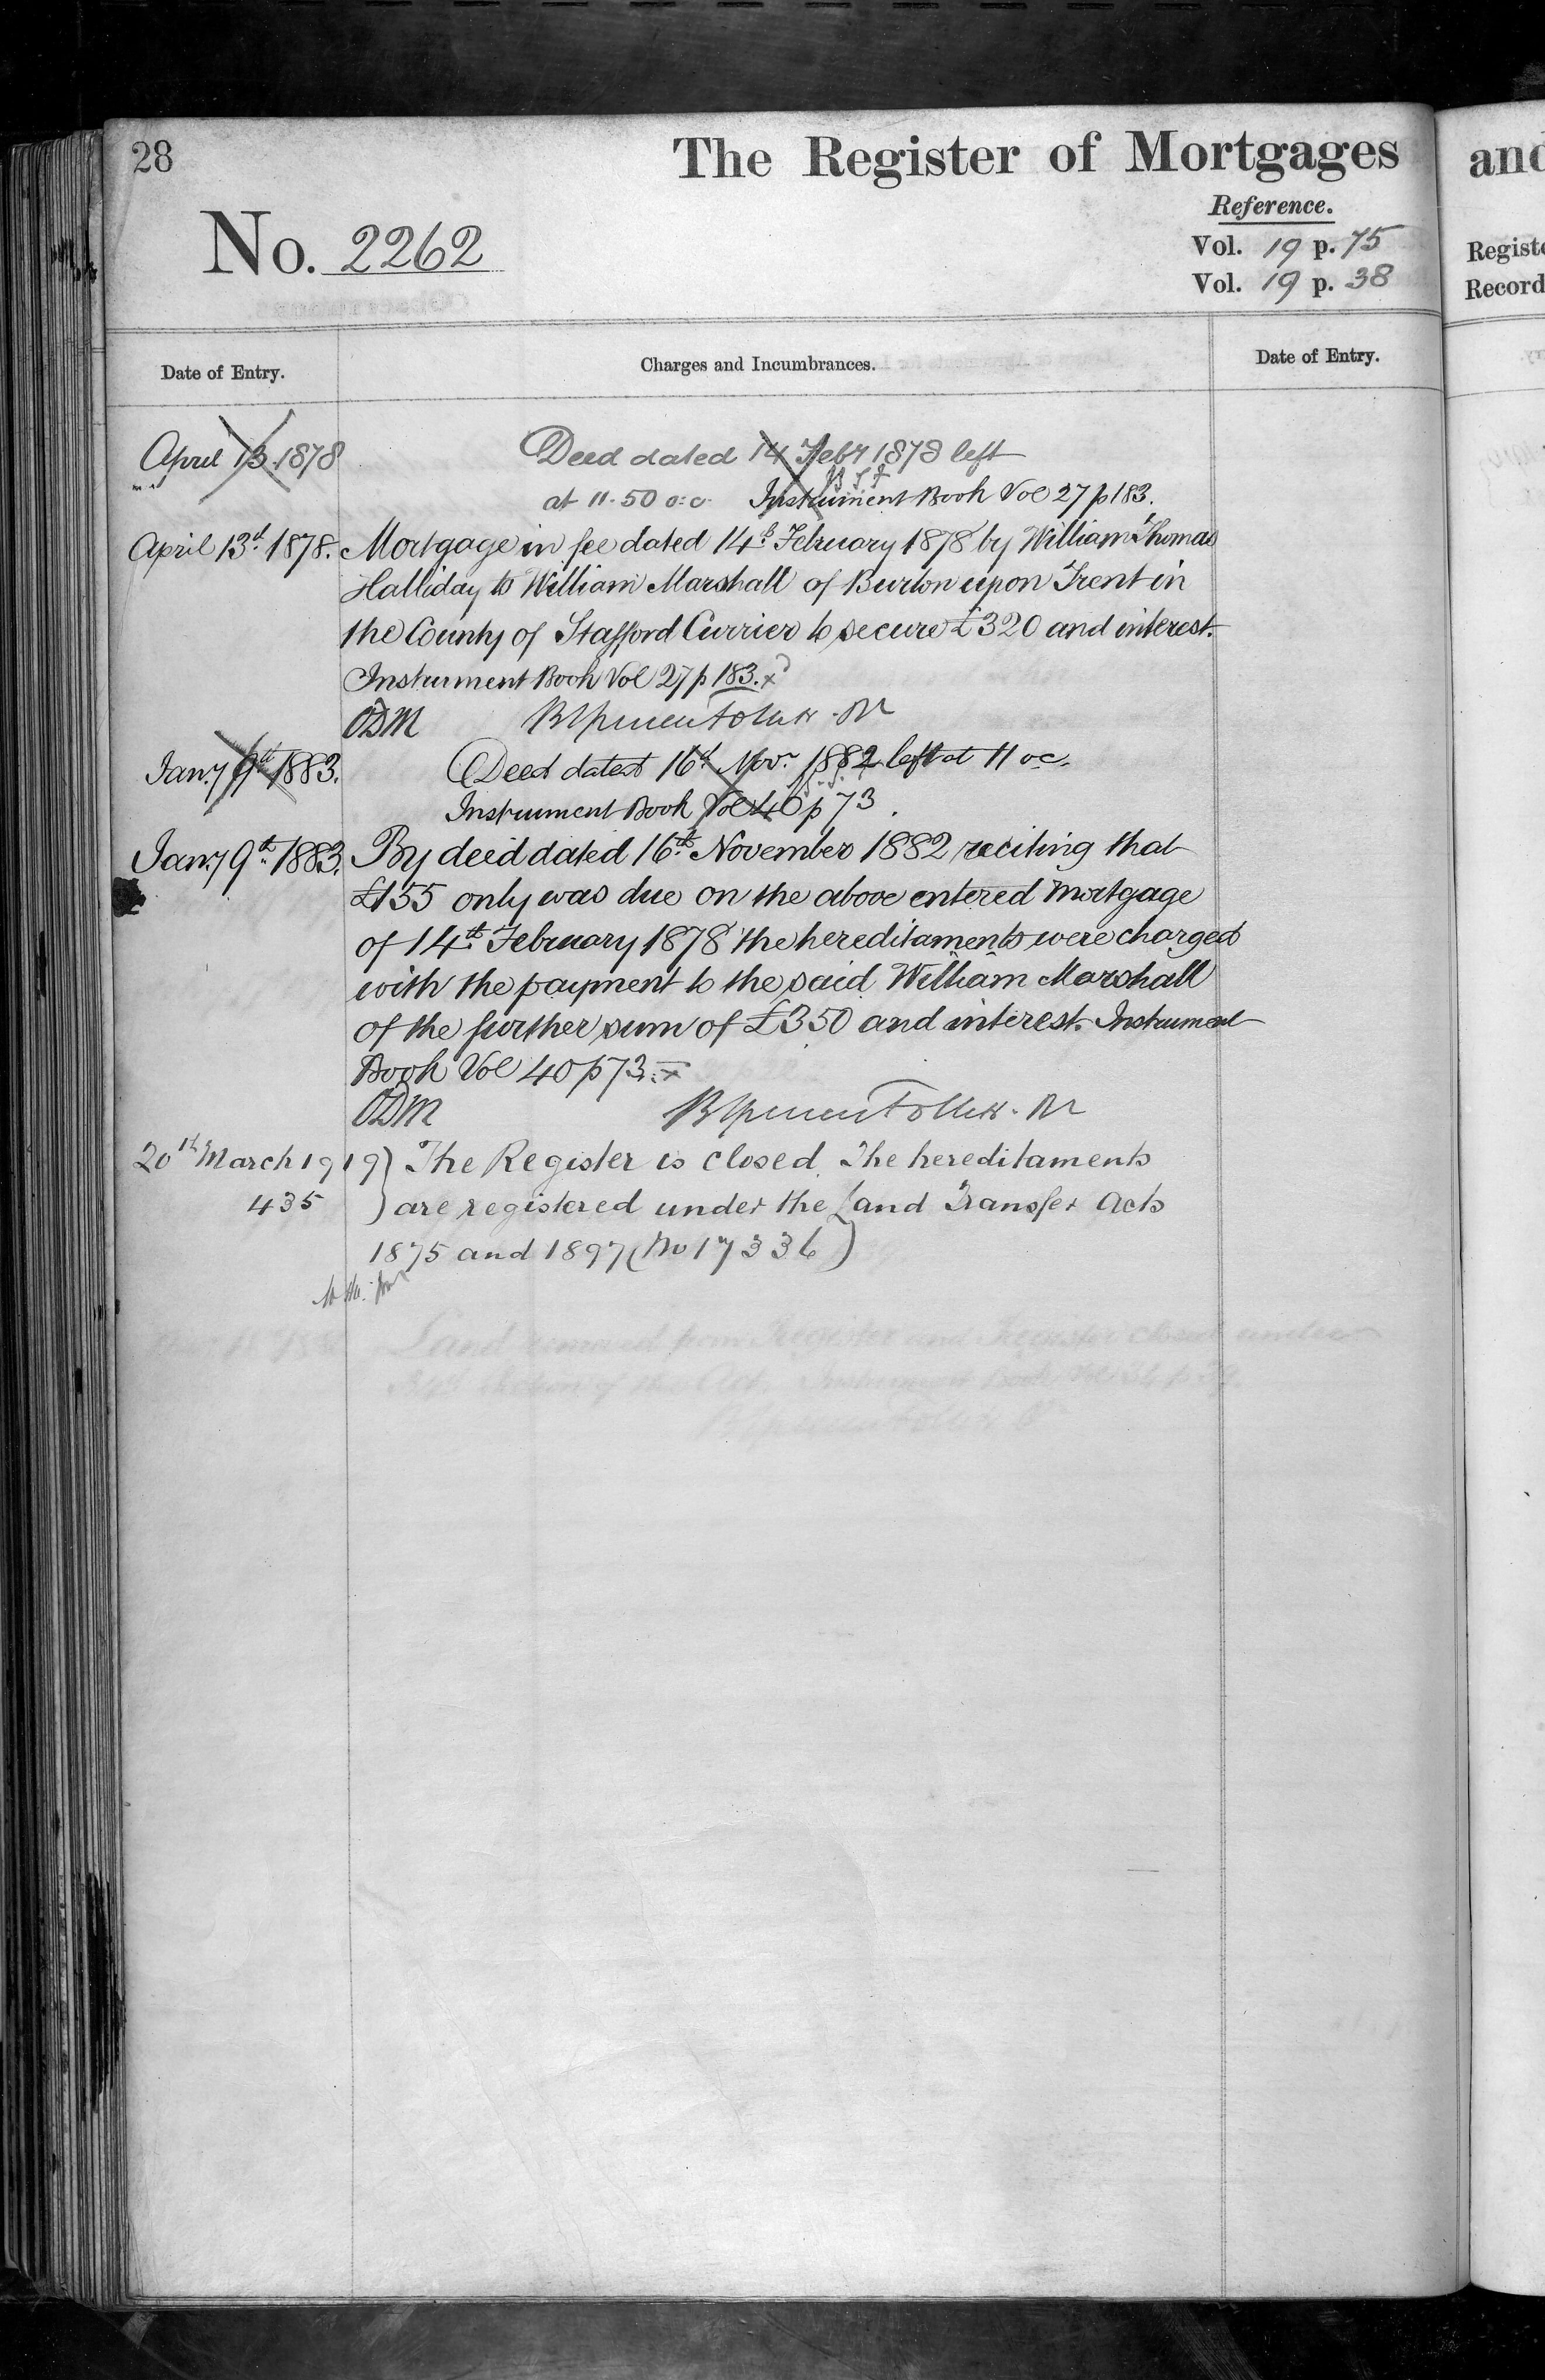 28
The Register of Mortgages
and
Reference.
No. 2262
Vol. 19 p. 75
Vol. 19 p. 38
Date of Entry.
Charges and Incumbrances.
Date of Entry.
April 13 1878
Deed dated 14 Feby 1878 left
at 11.50 o:c Instrument Book Vol 27 p 183.
April 13th 1878. Mortgage in fee dated 14th February 1878 by William Thomas
Halliday to William Marshall of Burton upon Trent in
the County of Stafford Currier to secure £320 and interest.
Instrument Book Vol 27 p 183. x
ODM
Jany 9th 1883. Deed dated 16th Novr 1882 left at 11 oc.
Instrument Book Vol 40 p 73.
Jany 9th 1883. By deed dated 16th November 1882 reciting that
£155 only was due on the above entered mortgage
of 14th February 1878 the hereditaments were charged
with the payment to the said William Marshall
of the further sum of £350 and interest. Instrument
Book Vol 40 p 73. x
ODM
20th March 1919) The Register is closed. The hereditaments
435 ) are registered under the Land Transfer Acts
1875 and 1897 (No 17336)